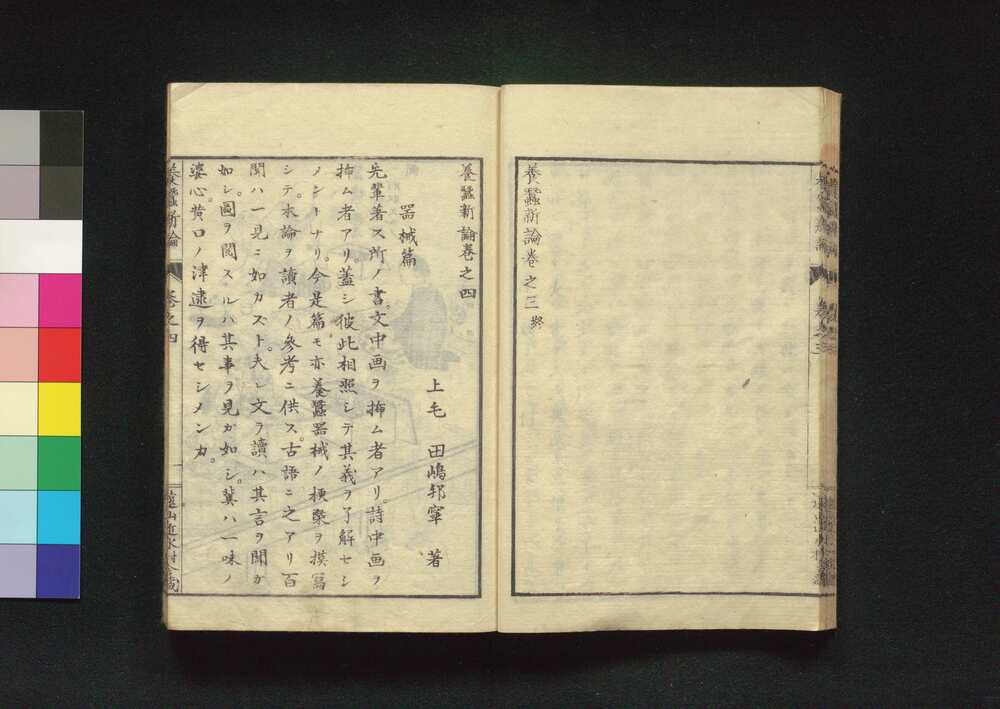 養蠶新論卷之三 終
養蠶新論卷之四
上毛 田嶋邦寧 著
器械篇
先輩著ス所ノ書。文中画ヲ挿ム者アリ。詩中画ヲ
挿ム者アリ。蓋シ彼此相照シテ其義ヲ了解セシ
メントナリ。今是篇モ亦養蠶器械ノ梗槩ヲ摸寫
シテ。本論ヲ讀者ノ參考ニ供ス。古語ニ之アリ百
聞ハ一見ニ如カスト。夫レ文ヲ讀ハ其言ヲ聞カ
如シ。圖ヲ閲スルハ其事ヲ見カ如シ。冀ハ一味ノ
婆心。黄口ノ津逮ヲ得セシメンカ。
養蠶新論 卷之四 一